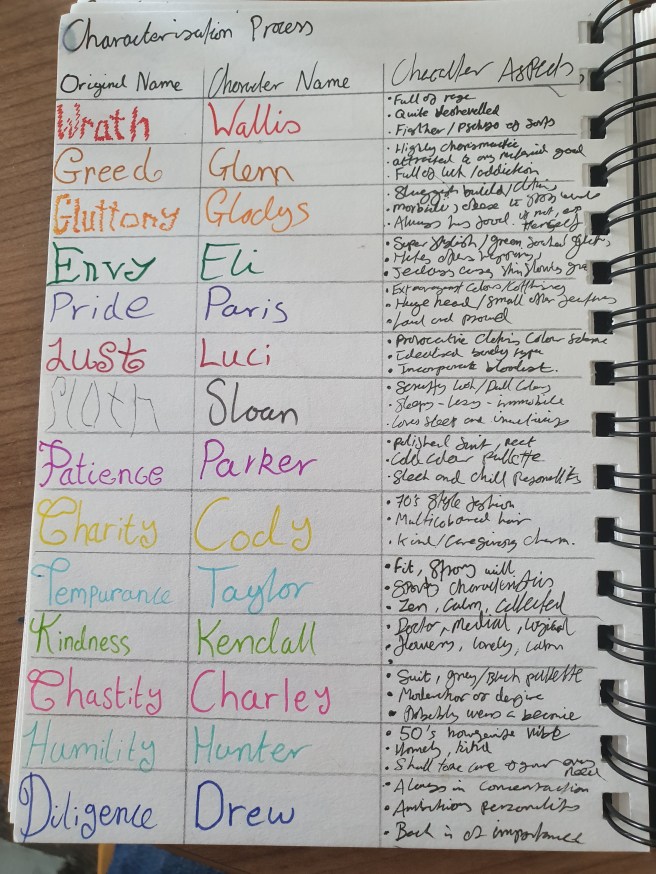 Characterisation Process
Original Name
Character Name
Character Aspects
Wrath
Wallis
• Full of rage
• Quite
• Fighter / of sorts
Greed
Glenn
• Highly charismatic
• attracted to any material good
• Full of / addiction
Gluttony
Gladys
• Sluggish build /
• morbid,
• Always has food
Envy
Eli
• Super stylish / green,
• Hates others
•
Pride
Paris
• Extravagant colours /
• Huge head / small other features
• Loud and proud
Lust
Luci
• Provocative clothing colour scheme
• Idealised body type
• Incorporate
Sloth
Sloan
• Scruffy look / Dull
• Sleepy - Lazy - immobile
• Loves sleep and
Patience
Parker
• polished suit, neet
• Cold colour pallette
• Sleek and chill
Charity
Cody
• 70's style fashion
• Multicoloured hair
• Kind / Caregiving charm.
Tempurance
Taylor
• Fit, strong will
• Sports characteristics
• Zen, calm, collected
Kindness
Kendall
• Doctor, medical, logical
• flowers, lovely, calm
•
Chastity
Charley
• Suit, grey/black pallette
•
• Probably wears a beanie
Humility
Hunter
• 50's housewife vibe
• Homely, kind
• Shall take care of your
need
Diligence
Drew
• Always in concentration
• Ambitious
• is of importance